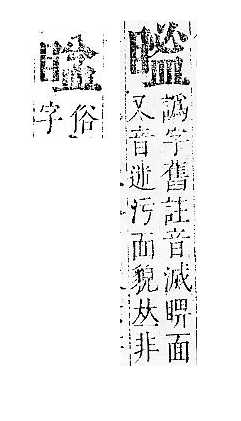 譌字舊註音滅面
又音迷汚面貌𠀤非
俗
字